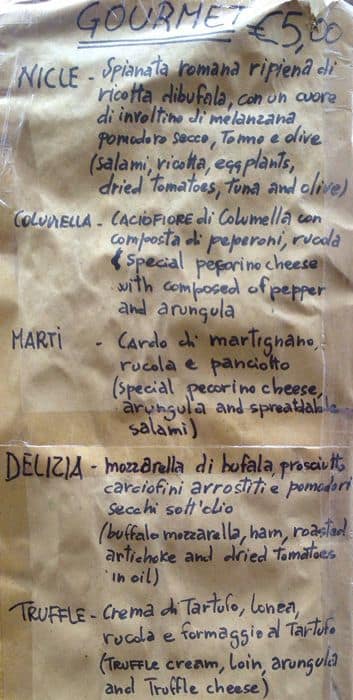 GOURMET €5,00
NICLE - Spianata romana ripiena di
ricotta dibufala, con un cuore
di involtino di melanzana
pomodoro secco, Tonno e olive
(salami, ricotta, eggplants,
dried Tomatoes, Tuna and olive)
COLUMELLA - CACIOFIORE di Columella con
composta di peperoni, rucola
(Special pecorino cheese
with composed of pepper
and arungula
MARTI - Cardo di martignano,
rucola e panciotto
(special pecorino cheese,
arungula and spreadable
salami)
DELIZIA - mozzarella di bufala, prosciutto
carciofini arrostiti e pomodori
secchi sott'olio
(buffalo mozzarella, ham, roasted
artichoke and dried Tomatoes
in oil)
TRUFFLE - Crema di Tartufo, lonea,
rucola e formaggio al Tartufo
(TRUFFLE cream, loin, arungula
and Truffle cheese)